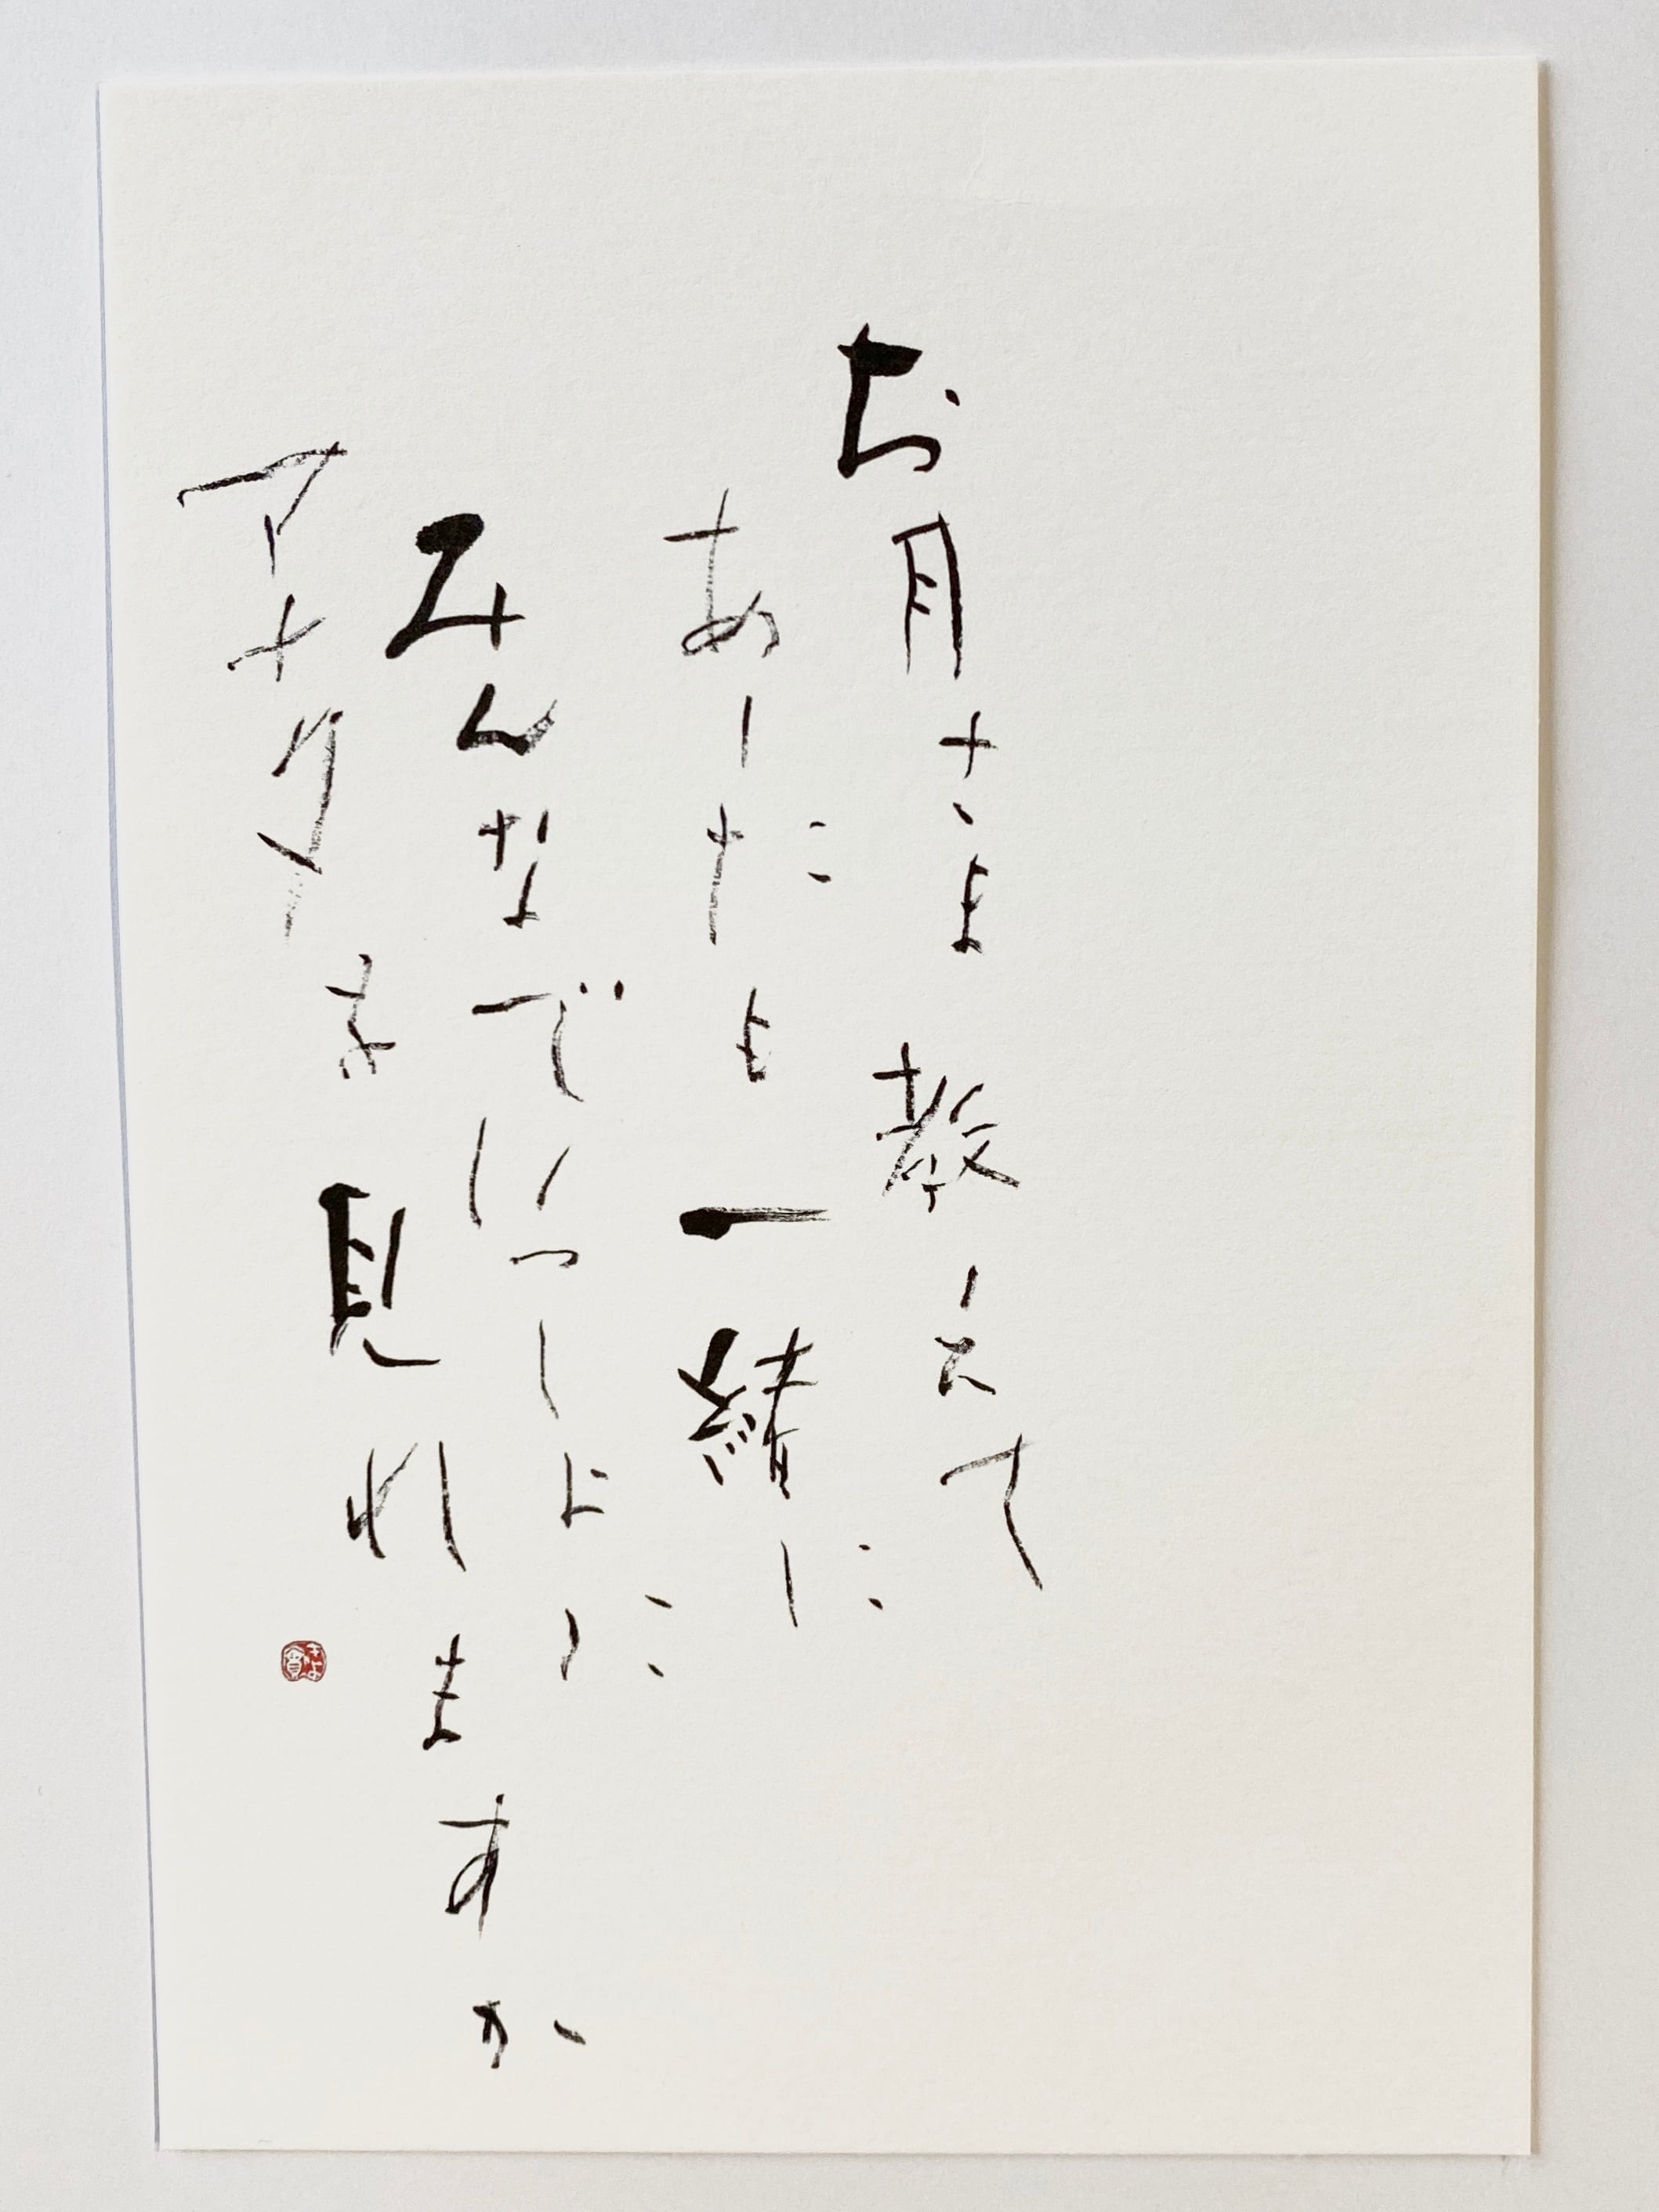 お月さま 教えて
あしたも一緒に
みんなでいっしょに
アナタを見れますか